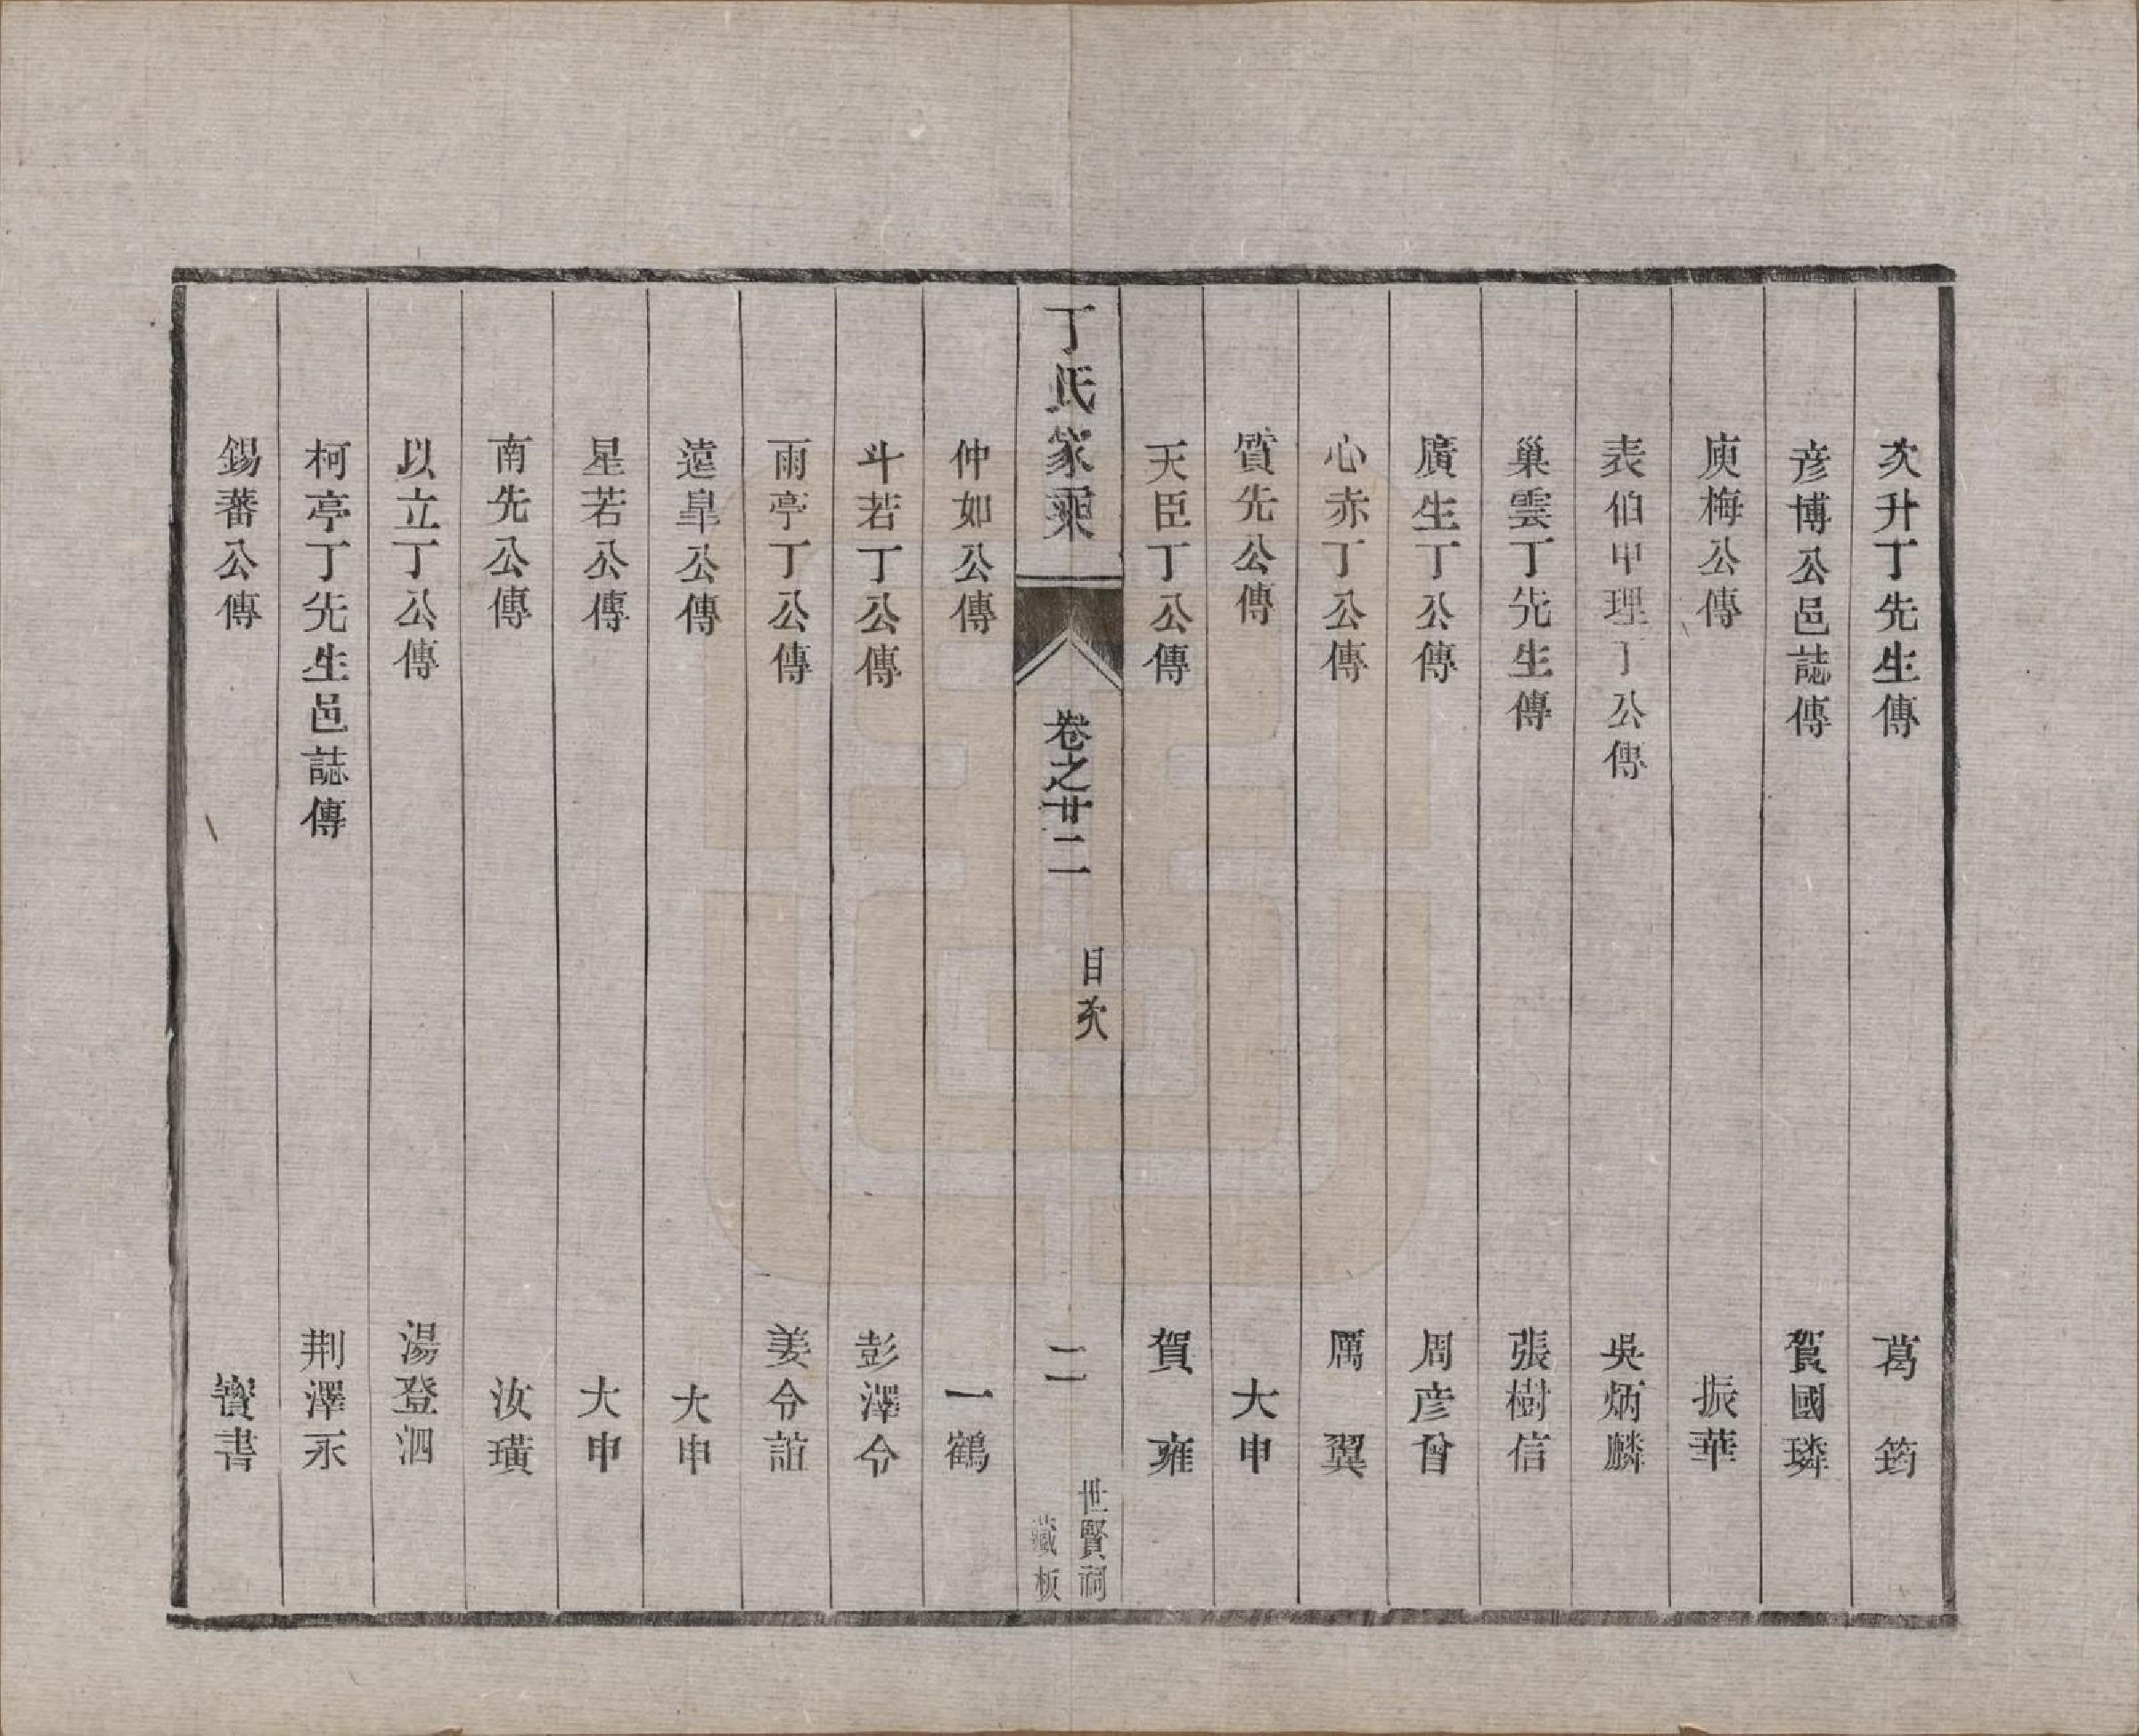 次升丁先生傳　葛筠
彦博公邑誌傳　賀國璘
庾梅公傳　振華
表伯甲理丁公傳　吳炳麟
巢雲丁先生傳　張樹信
廣生丁公傳　周彦曾
心赤丁公傳　厲翼
質先公傳　大申
天臣丁公傳　賀雍
丁氏家乘　卷之廿二　目次　二　世賢祠藏板
仲如公傳　一鶴
斗若丁公傳　彭澤令
雨亭丁公傳　姜令誼
遠臯公傳　大申
星若公傳　大申
南先公傳　汝璜
以立丁公傳　湯登泗
柯亭丁先生邑誌傳　荆澤永
錫蕃公傳　書